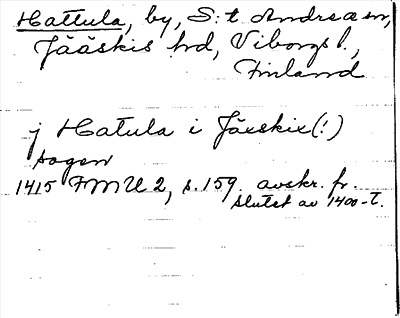 Hattula, by, S:t Andreæ sn,
Jääskis hd, Viborgs l.,
Finland
j Hatula i Jäxskix(!)
sogen
1415 FMU 2, s. 159. avskr. fr.
slutet av 1400-t.